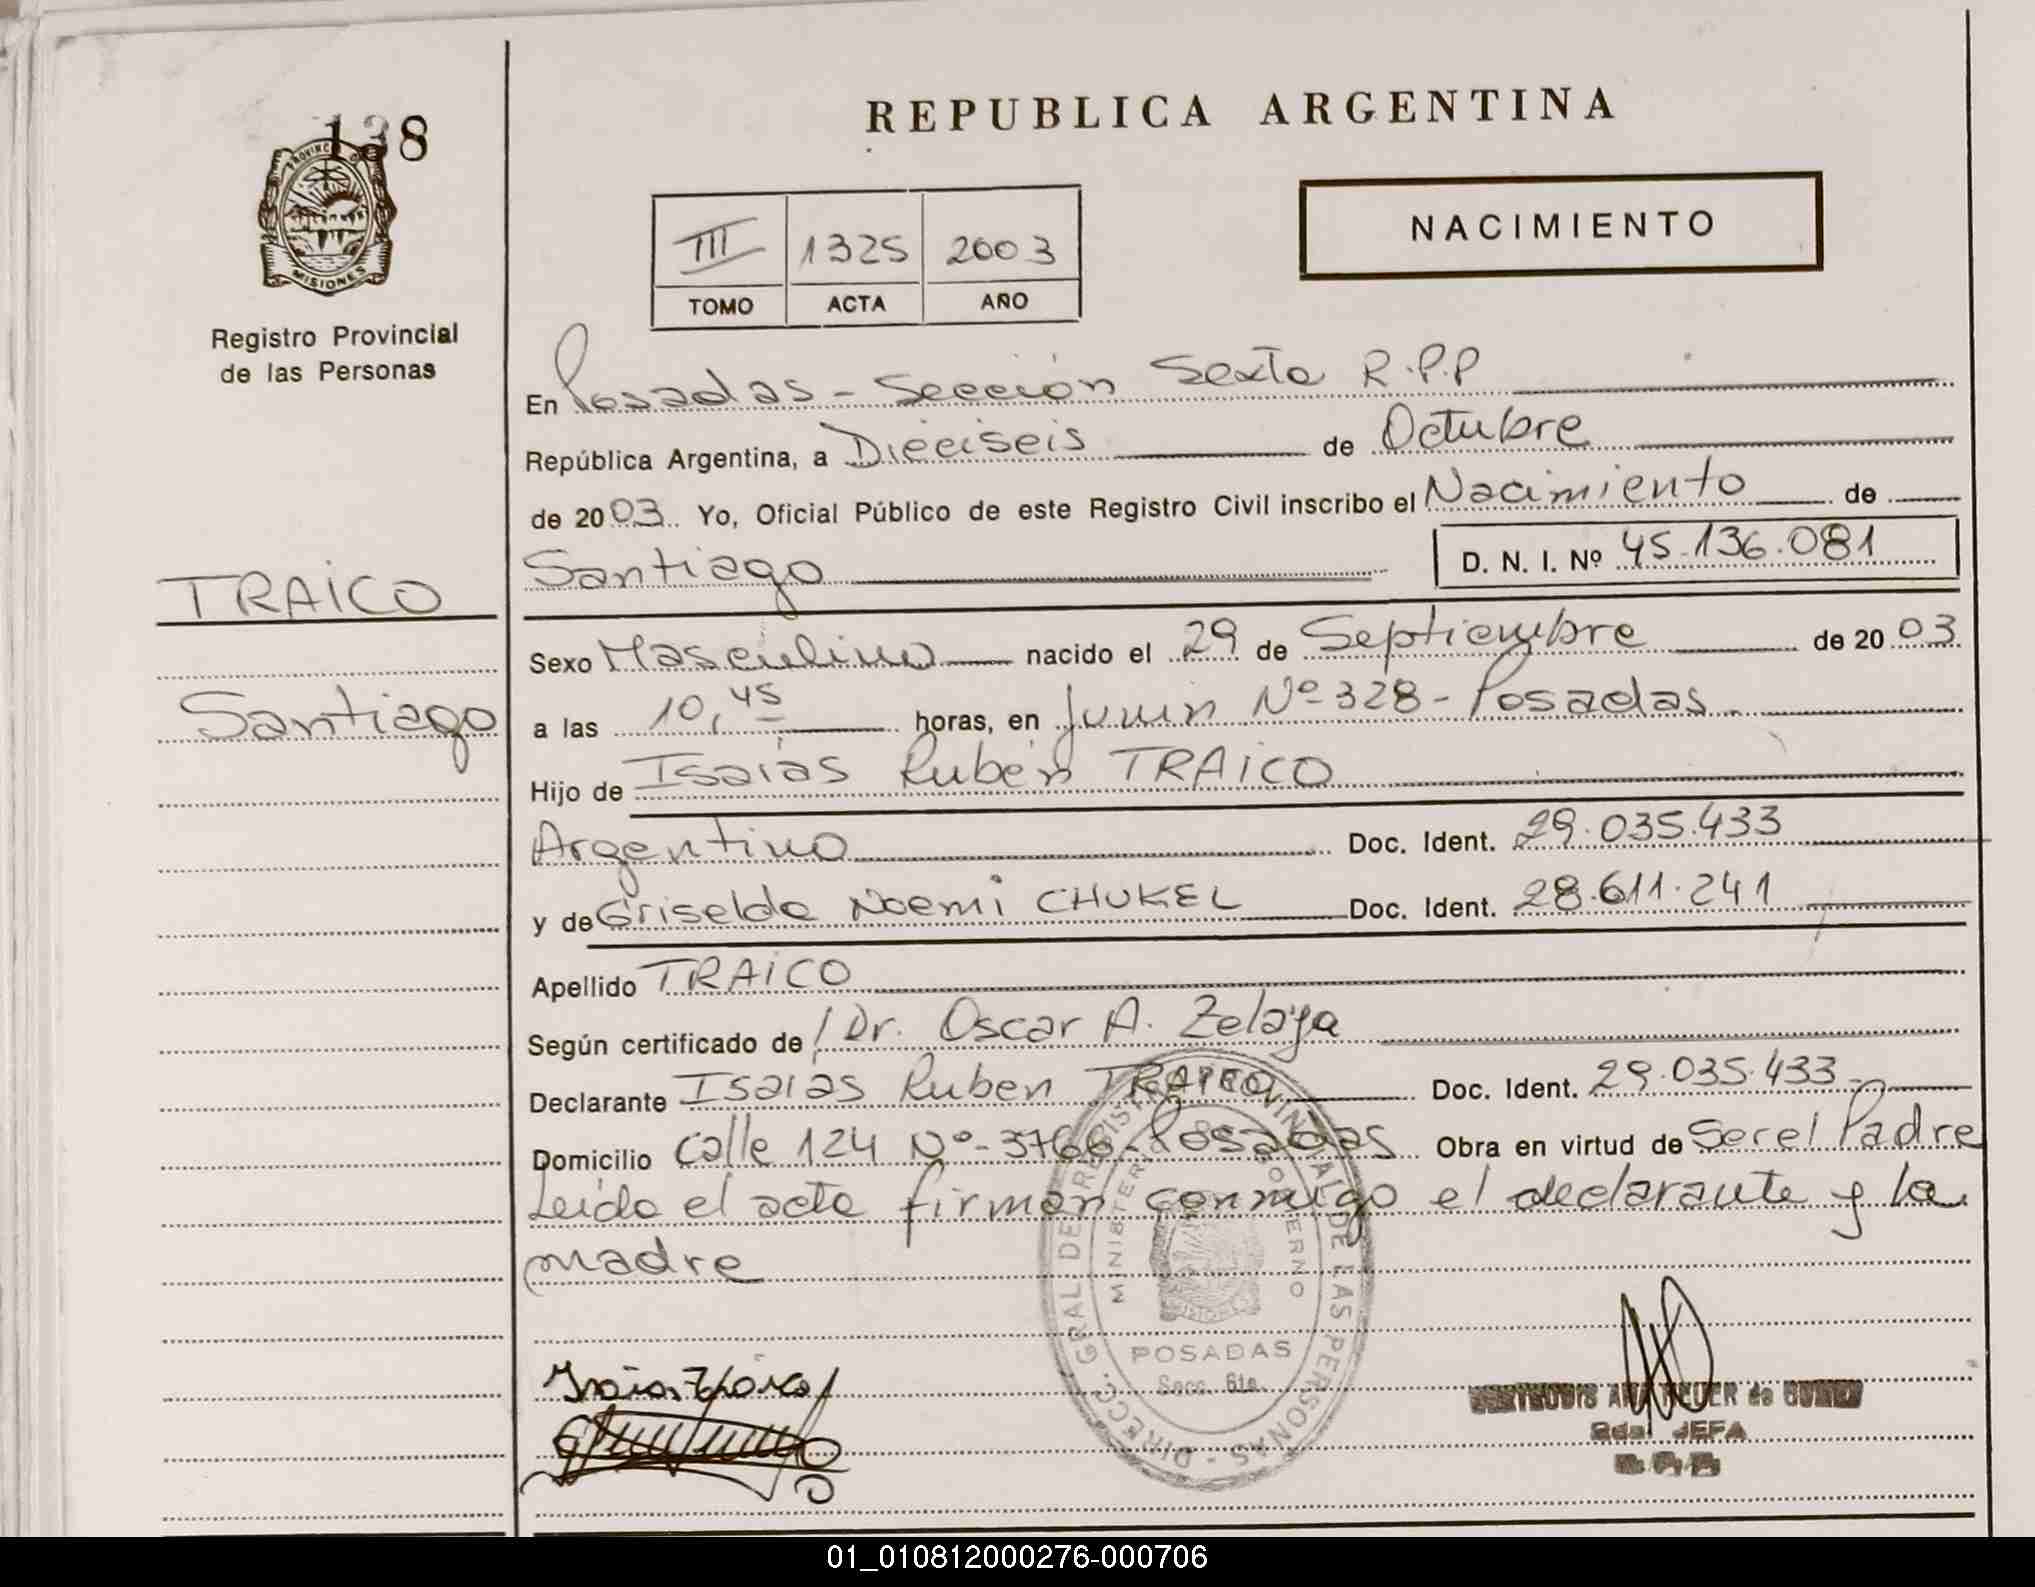 138
PROVINCIA DE
MISIONES
Registro Provincial
de las Personas
TRAICO
Santiago
REPUBLICA ARGENTINA
NACIMIENTO
III 1325 2003
TOMO ACTA AÑO
En Posadas - Sección Sexta R.P.P
República Argentina, a Dieciseis de Octubre
de 2003. Yo, Oficial Público de este Registro Civil inscribo el Nacimiento de
Santiago D. N. I. Nº 45.136.081
Sexo Masculino nacido el 29 de Septiembre de 2003
a las 10,45 horas, en Junin Nº 328 - Posadas
Hijo de Isaías Rubén TRAICO
Argentino Doc. Ident. 29.035.433
y de Griselda Noemi CHUKEL Doc. Ident. 28.611.241
Apellido TRAICO
Según certificado de Dr. Oscar A. Zelaya
Declarante Isaias Ruben TRAICO Doc. Ident. 29.035.433
Domicilio Calle 124 Nº - 3766 - Posadas Obra en virtud de Ser el Padre
Leída el acta firman conmigo el declarante y la
madre
DIRECC. GRAL DE REGISTRO PROVINCIAL DE LAS PERSONAS
MINISTERIO GOBIERNO
POSADAS
Secc. 6ta.
JEFA
01_010812000276-000706